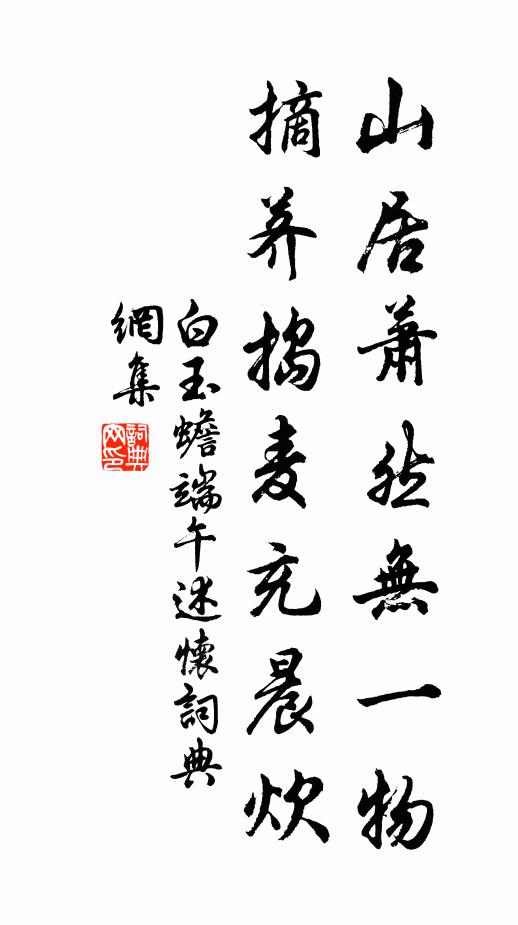 山居蕭然無一物
摘荞搗麦充晨炊
白玉蟾端午述懷詞典
網集
詞典
网印